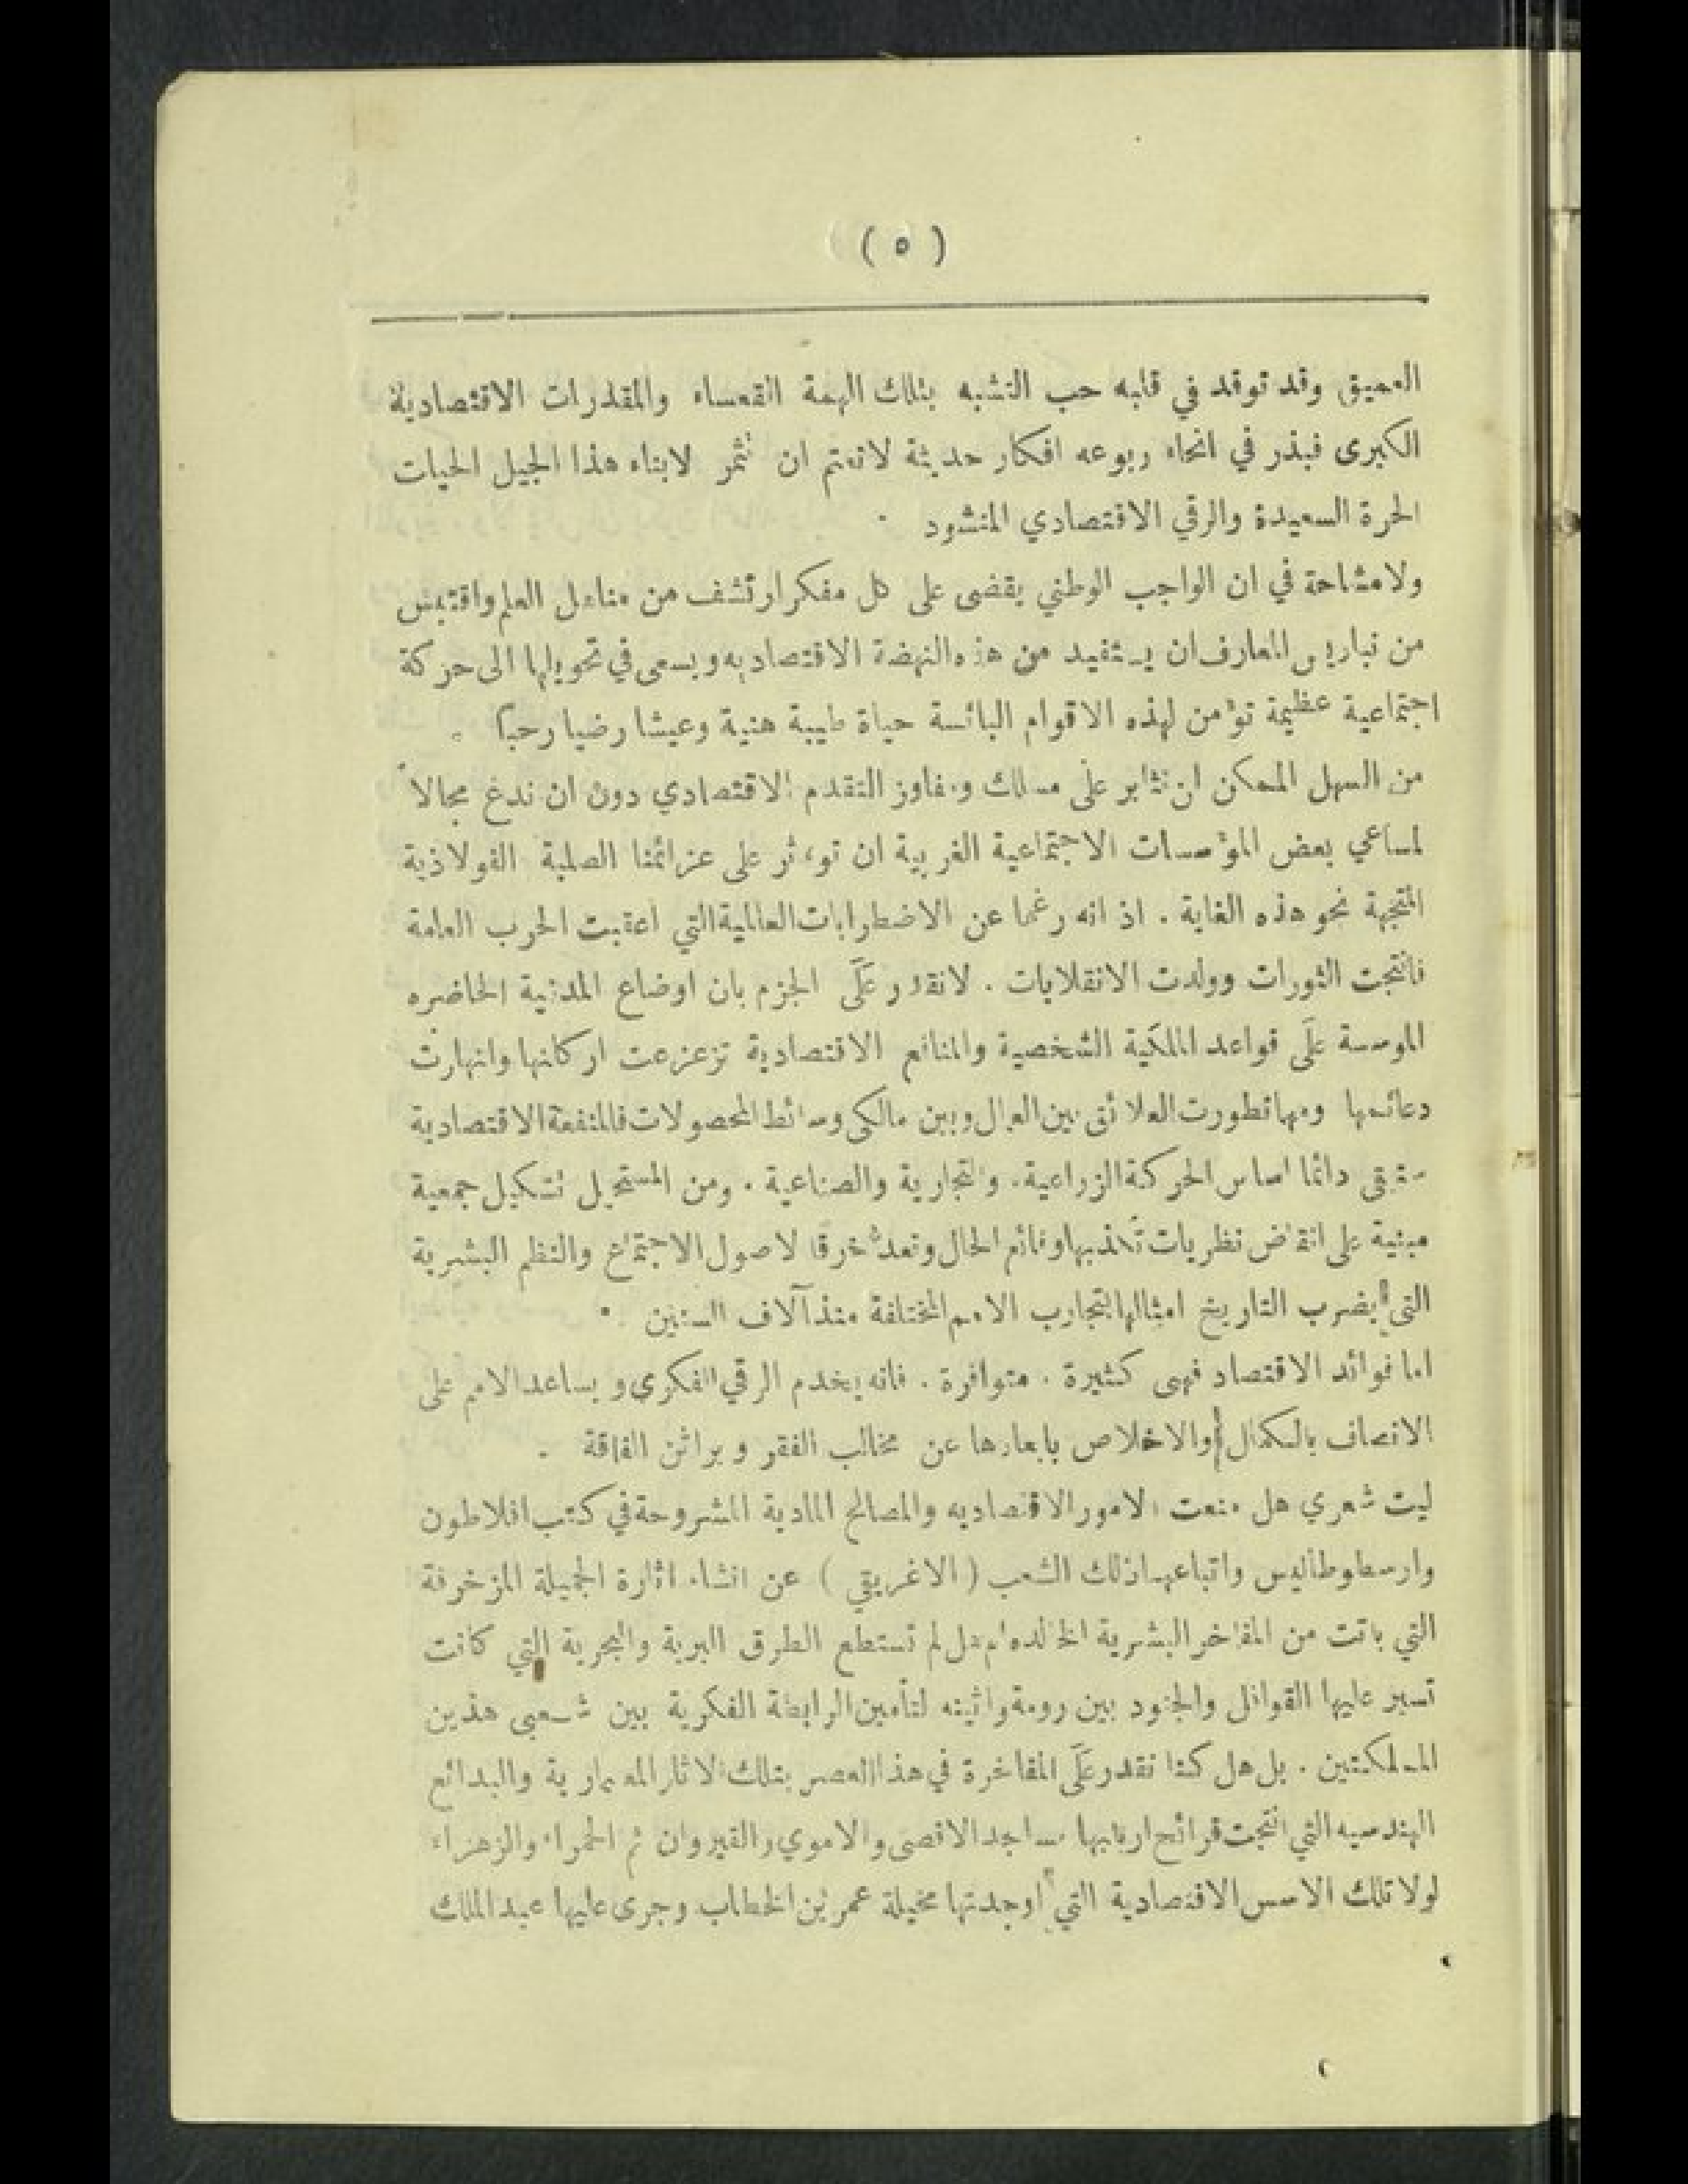 ( ٥ )
العميق وقد توقد في قلبه حب التشبه بتلك الهمة القعساء والمقدرات الاقتصادية
الكبرى فبذر في انحاء ربوعه افكار حديثة لاتعتم ان تثمر لابناء هذا الجيل الحيات
الحرة السعيدة والرقي الاقتصادي المنشود .
ولا مشاحة في ان الواجب الوطني يقضى على كل مفكر ارتشف من مناهل العلم واقتبس
من نباريس المعارف ان يستفيد من هذه النهضة الاقتصاديه ويسعى في تحويلها الى حركة
اجتماعية عظيمة تؤمن لهذه الاقوام البائسة حياة طيبة هنية وعيشا رضيا رحبا .
من السهل الممكن ان نثابر على مسالك ومفاوز التقدم الاقتصادي دون ان ندع مجالاً
لمساعي بعض المؤسسات الاجتماعية الغربية ان تؤثر على عزائمنا الصلبة الفولاذية
المتجهة نحو هذه الغاية . اذ انه رغما عن الاضطرابات العالمية التي اعقبت الحرب العامة
فانتجت الثورات وولدت الانقلابات . لانقدر على الجزم بان اوضاع المدنية الحاضره
الموسسة على قواعد الملكية الشخصية والمنافع الاقتصادية تزعزعت اركانها وانهارت
دعائمها ومهما تطورت العلائق بين العمال وبين مالكى وسائط المحصولات فالمنفعة الاقتصادية
ستبقى دائما اساس الحركة الزراعية. والتجارية والصناعية . ومن المستحيل تشكيل جمعية
مبنية على انقاض نظريات تكذبها وقائع الحال وتعد خرقا لاصول الاجتماع والنظم البشرية
التي يضرب التاريخ امثالها بتجارب الامم المختلفة منذ آلاف السنين .
اما فوائد الاقتصاد فهى كثيرة . متوافرة . فانه يخدم الرقي الفكرى و يساعد الامم على
الاتصاف بالكمال والاخلاص بابعارها عن مخالب الفقر و براثن الفاقة .
ليت شعري هل منعت الامور الاقتصاديه والمصالح المادية المشروحة في كتب افلاطون
وارسطوطاليس واتباعهما ذلك الشعب ( الاغريقي ) عن انشاء اثارة الجميلة المزخرفة
التي باتت من المفاخر البشرية الخالده ام هل لم تستطع الطرق البرية والبحرية التي كانت
تسير عليها القوافل والجنود بين رومة واثينه لتأمين الرابطة الفكرية بين شعبى هذين
المملكتين . بل هل كنا نقدر على المفاخرة في هذا العصر بتلك الاثار المعمارية والبدائع
الهندسيه التي انتجت قرائح اربابها مساجد الاقصى والاموي والقيروان ثم الحمراء والزهراء
لولا تلك الاسس الاقتصادية التي اوجدتها مخيلة عمر بن الخطاب وجرى عليها عبد الملك